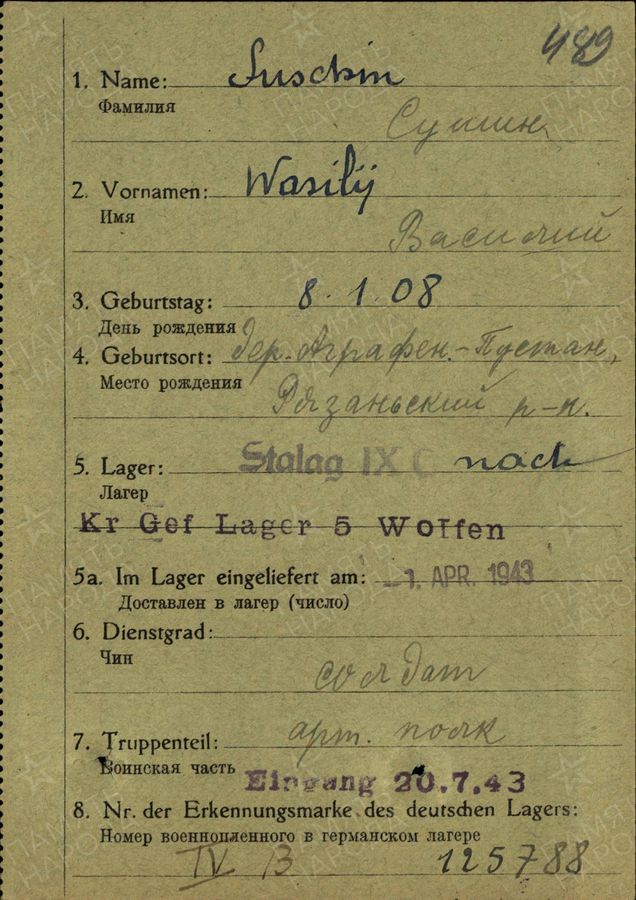 489
1. Name: Suschin
Фамилия
Сушин
2. Vornamen: Wasilij
Имя
Василий
3. Geburtstag: 8.1.08
День рождения
4. Geburtsort: дер. Аграфен.-Пустан,
Место рождения
Рязаньский р-н.
5. Lager: Stalag IX C nach
Лагер
Kr Gef Lager 5 Wolfen
5a. Im Lager eingeliefert am: -1. APR. 1943
Доставлен в лагер (число)
6. Dienstgrad:
Чин
солдат
7. Truppenteil: арт. полк
Воинская часть Eingang 20.7.43
8. Nr. der Erkennungsmarke des deutschen Lagers:
Номер военнопленного в германском лагере
IV B 125788